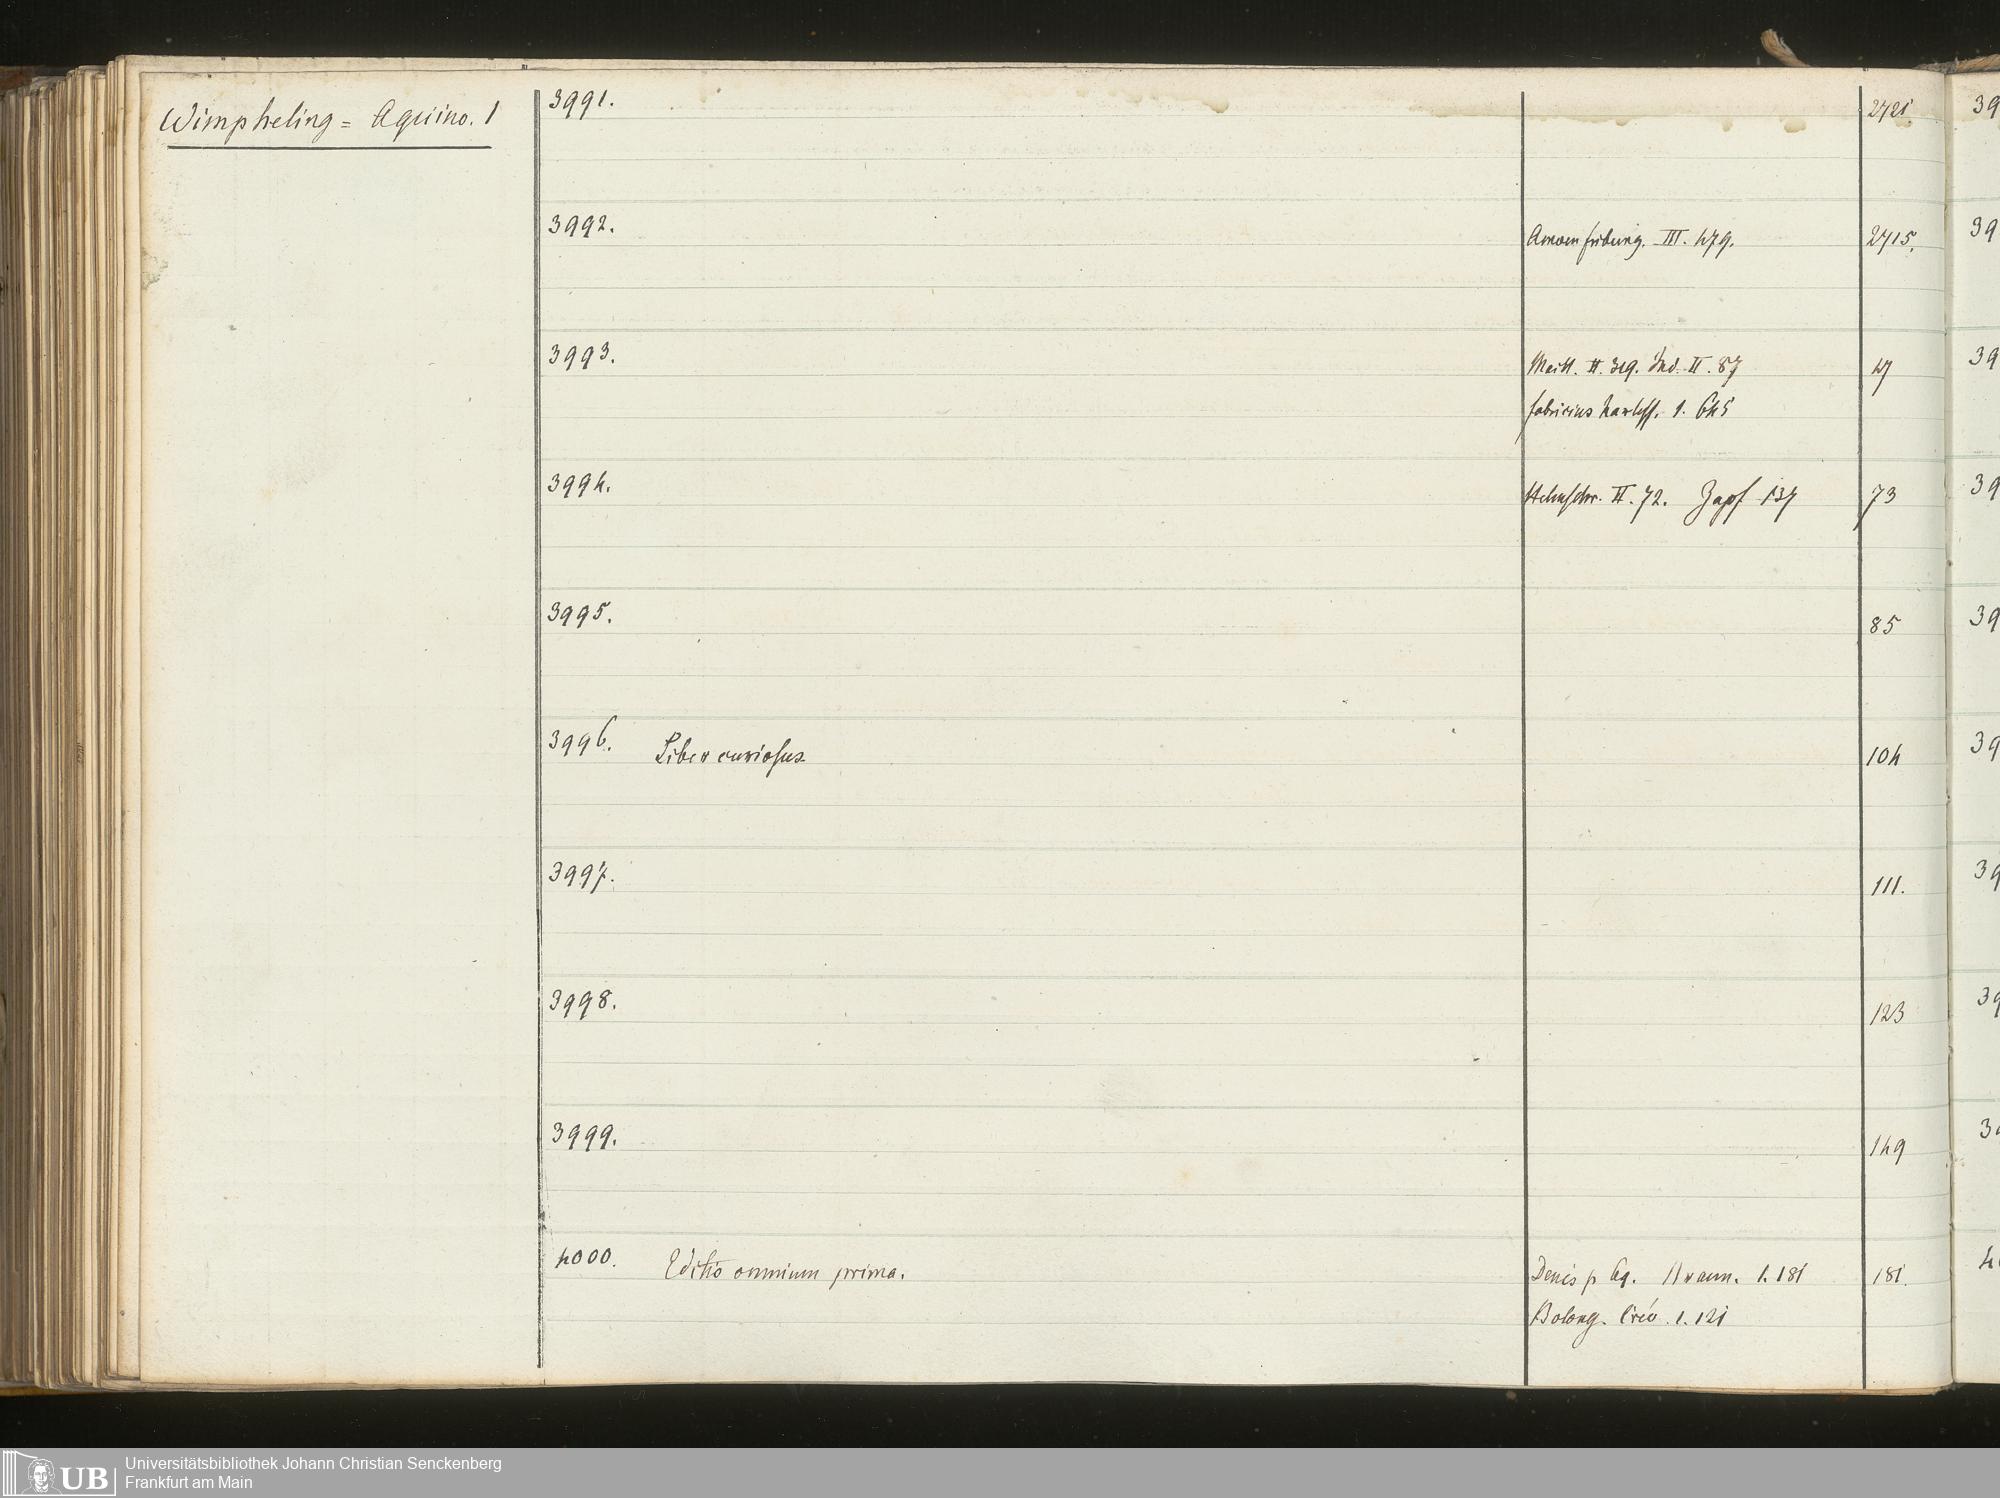 Wimpheling = Aquino. 1
3991. 2721.
3992. Amoen friburg. III. 479. 2715.
3993. Mait. II. 319. Ind. II. 87 47
fabricius 1. 645
3994. II. 72. Zapf 137 73
3995. 85
3996. Liber curiosus. 104
3997. 111.
3998. 123
3999. 149
4000. Editio omnium prima. Denis p 69. Braun. 1. 181 181.
Bolong. Crev. 1. 121
39
39
39
39
39
39
39
39
39
4
UB
Universitätsbibliothek Johann Christian Senckenberg
Frankfurt am Main